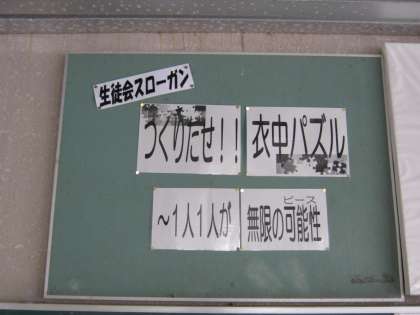 生徒会スローガン
つくりだせ!! 衣中パズル
～1人1人が 無限の可能性
ピース